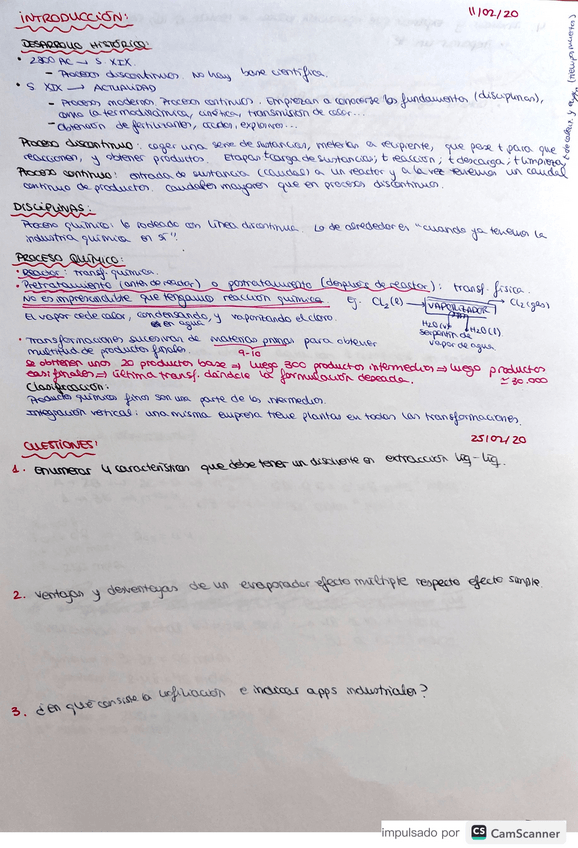 INTRODUCCIÓN:
11/02/20
DESARROLLO HISTÓRICO:
• 2800 AC → S XIX.
– Procesos discontinuos. No hay base científica.
• S XIX → ACTUALIDAD
– Procesos modernos. Procesos continuos. Empiezan a conocerse los fundamentos (disciplinas),
como la termodinámica, cinética, transmisión de calor...
– obtención de fertilizantes, ácidos, explosivos...
Proceso discontinuo: coger una serie de sustancias, meterlas a recipiente, que pase t para que
reaccionen, y obtener productos. Etapas: tcarga de sustancias; t reacción; t descarga; t limpieza
Proceso continuo: entrada de sustancia (caudal) a un reactor y a la vez tenemos un caudal
continuo de productos. Caudales mayores que en procesos discontinuos.
(tiempos muertos)
DISCIPLINAS:
Proceso químico: lo rodeado con línea discontinua. Lo de alrededor es "cuando ya tenemos la
industria química en sí".
PROCESO QUÍMICO:
• Reactor: transf. química.
• Pretratamiento (antes de reactor) o postratamiento (después de reactor): transf. física.
No es imprescindible que tengamos reacción química. Ej. Cl2(l) → VAPORIZADOR → Cl2(gas)
El vapor cede calor, condensando, y vaporizando el cloro.
en agua
H2O(v) H2O(l)
serpentín de
vapor de agua
• Transformaciones sucesivas de materias primas para obtener
multitud de productos finales. 9-10
Se obtienen unos 20 productos base ⇒ luego 300 productos intermedios ⇒ luego productos
casi finales ⇒ última transf. dándole la formulación deseada. ≃ 30.000
Clasificación:
Productos químicos finos son una parte de los intermedios.
Integración vertical: una misma empresa tiene plantas en todas las transformaciones.
25/02/20
CUESTIONES:
1. enumerar 4 características que debe tener un disolvente en extracción líq-líq.
2. ventajas y desventajas de un evaporador efecto múltiple respecto efecto simple.
3. ¿en qué consiste la liofilización e indicar apps industriales?
impulsado por CS CamScanner